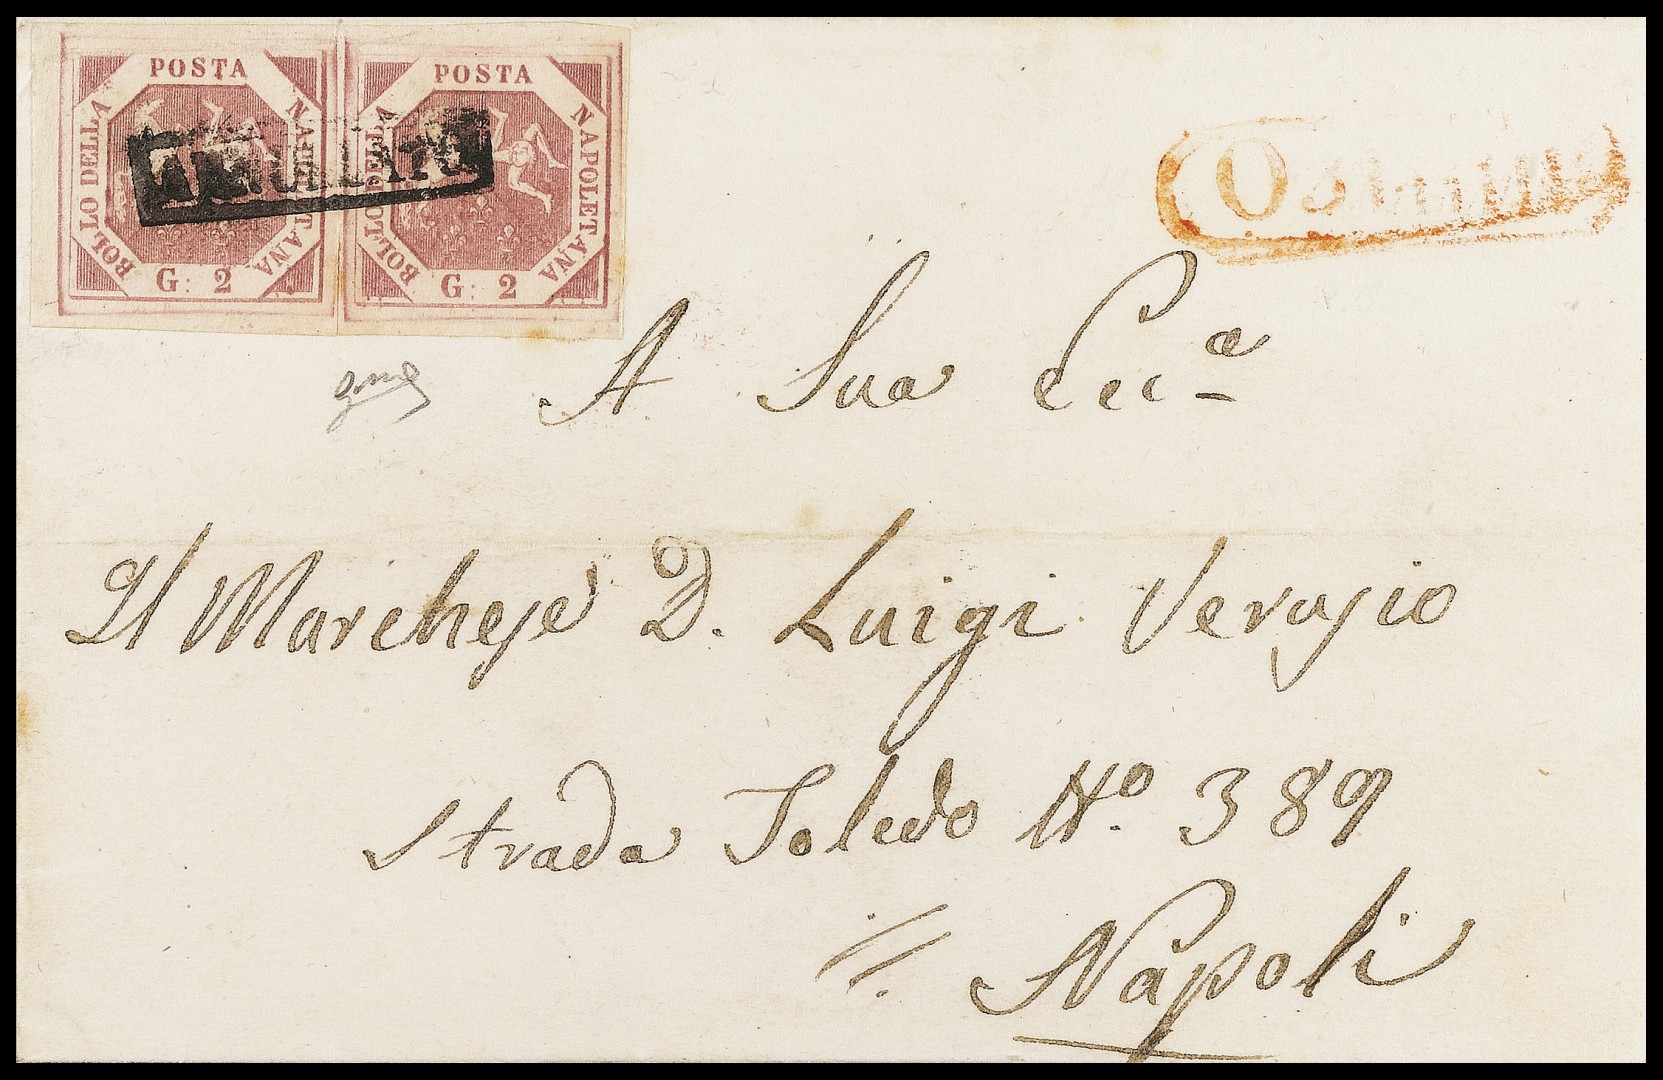 POSTA
BOLLO DELLA
NAPOLETANA
G. 2
POSTA
BOLLO DELLA
NAPOLETANA
G. 2
ANNULLATO
A Sua Ecc.ª
Il Marchese D. Luigi Verasio
Strada Toledo Nº. 389
Napoli